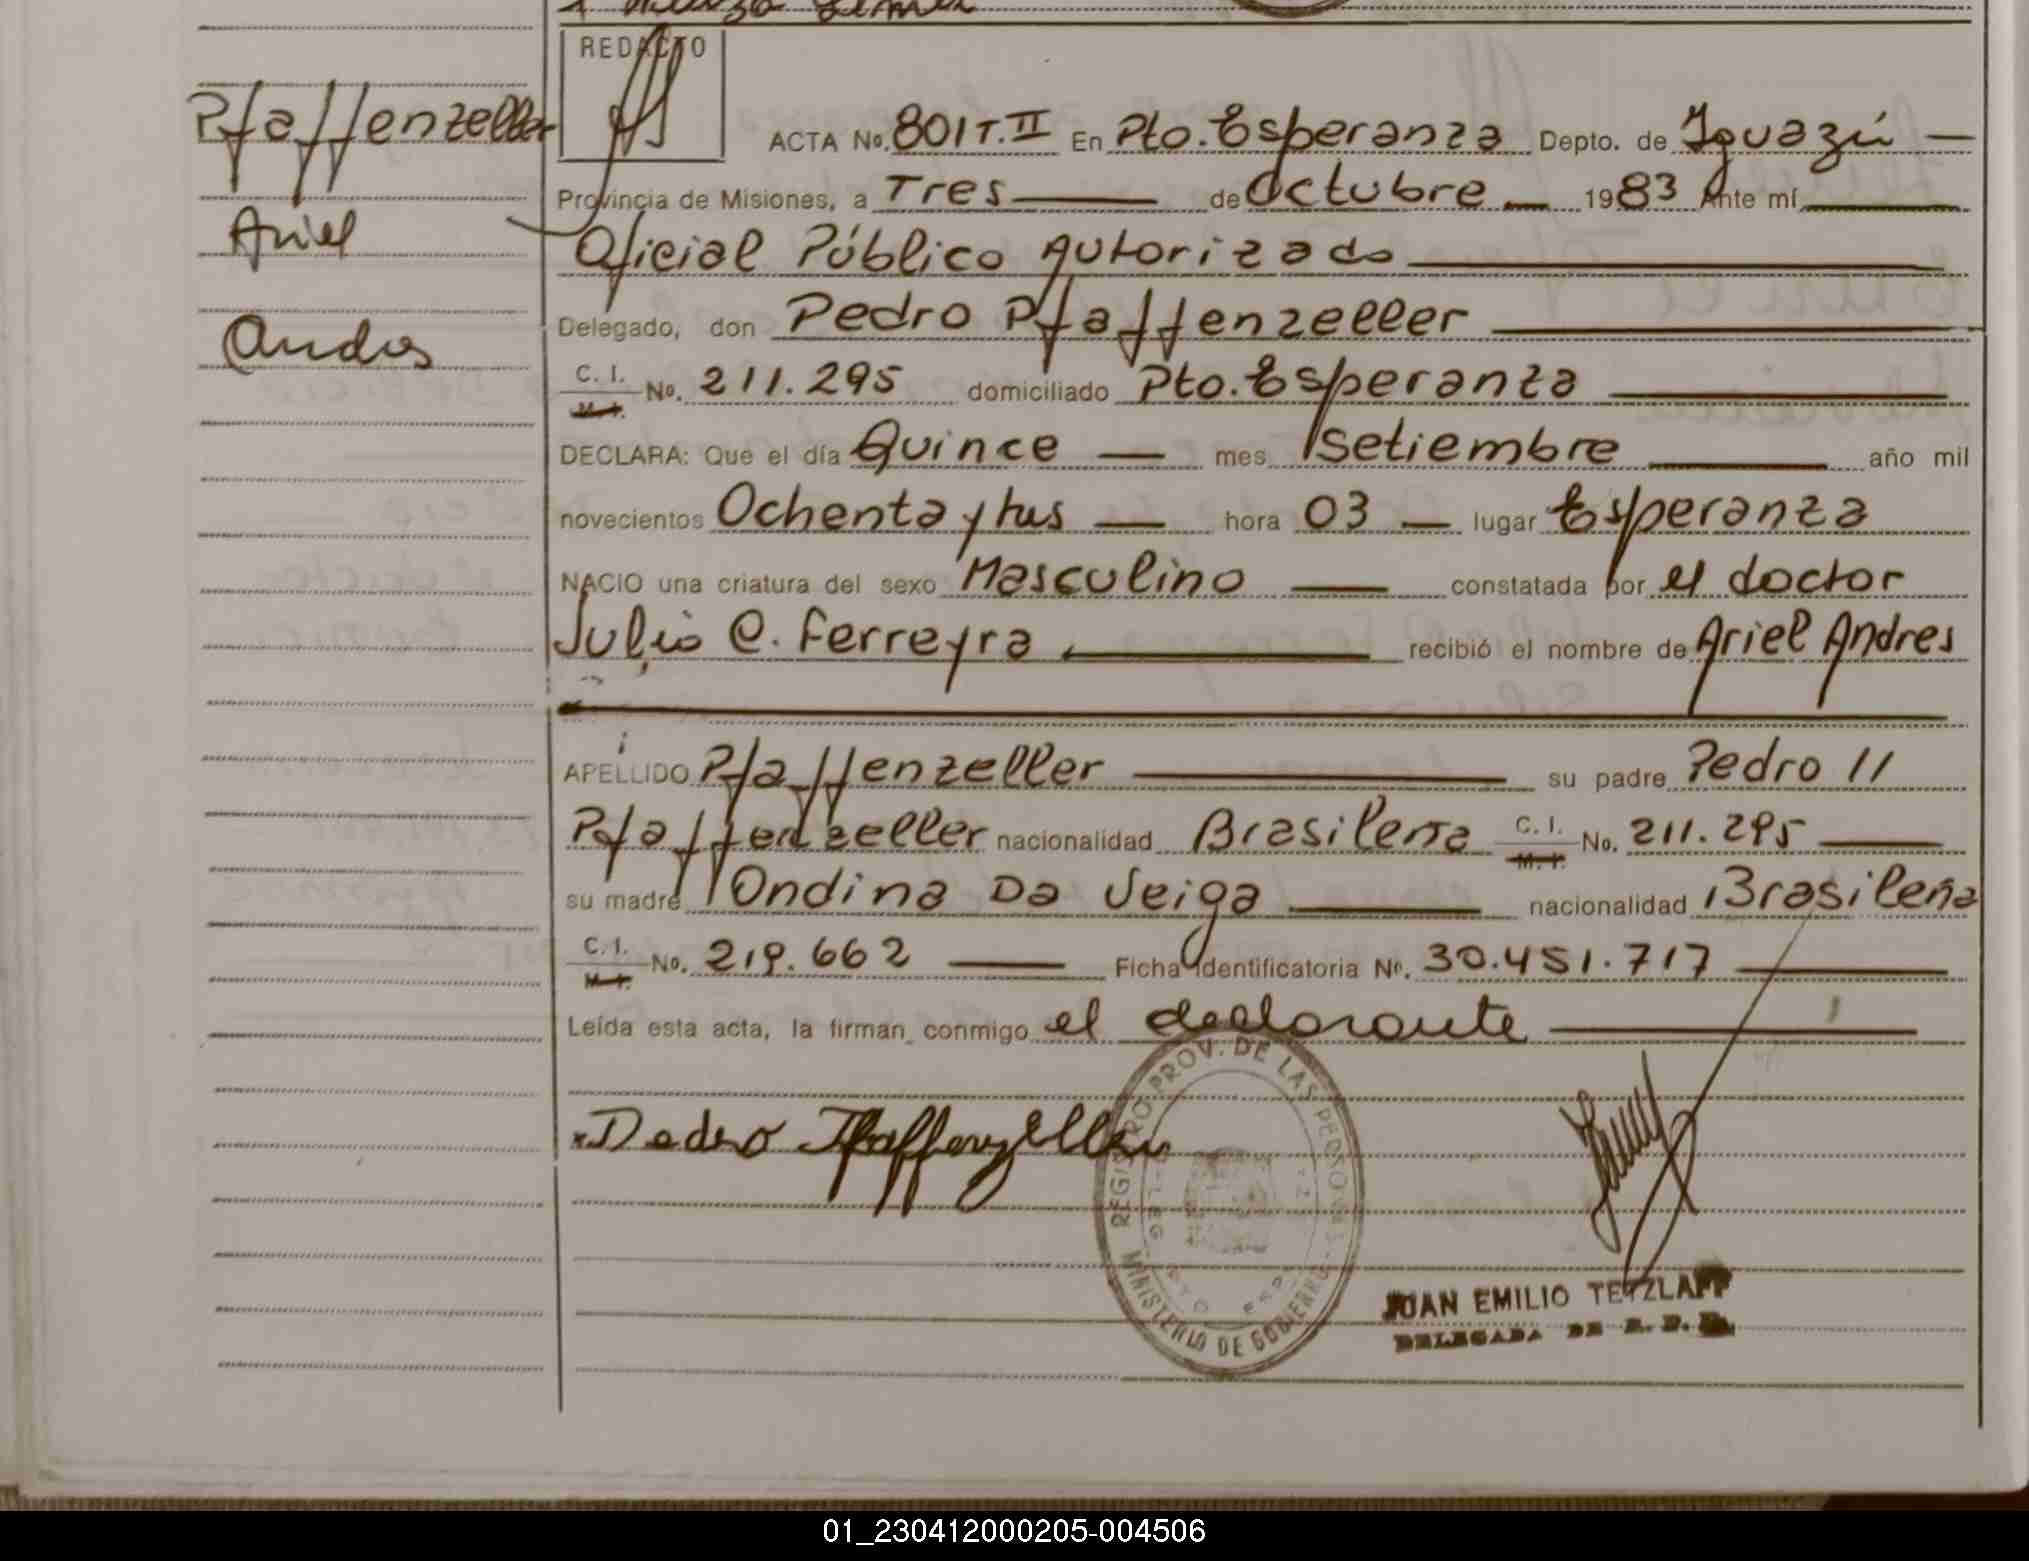 REDACTO
Pfaffenzeller
Ariel
Andres
ACTA No. 801 T. II En Pto. Esperanza Depto. de Iguazú
Provincia de Misiones, a Tres de Octubre 1983 Ante mí
Oficial Público Autorizado
Delegado, don Pedro Pfaffenzeller
C. I. M. I. No. 211.295 domiciliado Pto. Esperanza
DECLARA: Que el día Quince mes Setiembre año mil
novecientos Ochenta y tres hora 03 lugar Esperanza
NACIO una criatura del sexo Masculino constatada por el doctor
Julio C. Ferreyra recibió el nombre de Ariel Andres
APELLIDO Pfaffenzeller su padre Pedro
Pfaffenzeller nacionalidad Brasileña C. I. M. I. No. 211.295
su madre Ondina Da Veiga nacionalidad Brasileña
C. I. M. I. No. 219.662 Ficha Identificatoria No. 30.451.717
Leída esta acta, la firman conmigo el declarante
Pedro Pfaffenzeller
REGISTRO PROV. DE LAS PERSONAS
MINISTERIO DE GOBIERNO
JUAN EMILIO TETZLAFF
DELEGADA DE R. P.
01_230412000205-004506